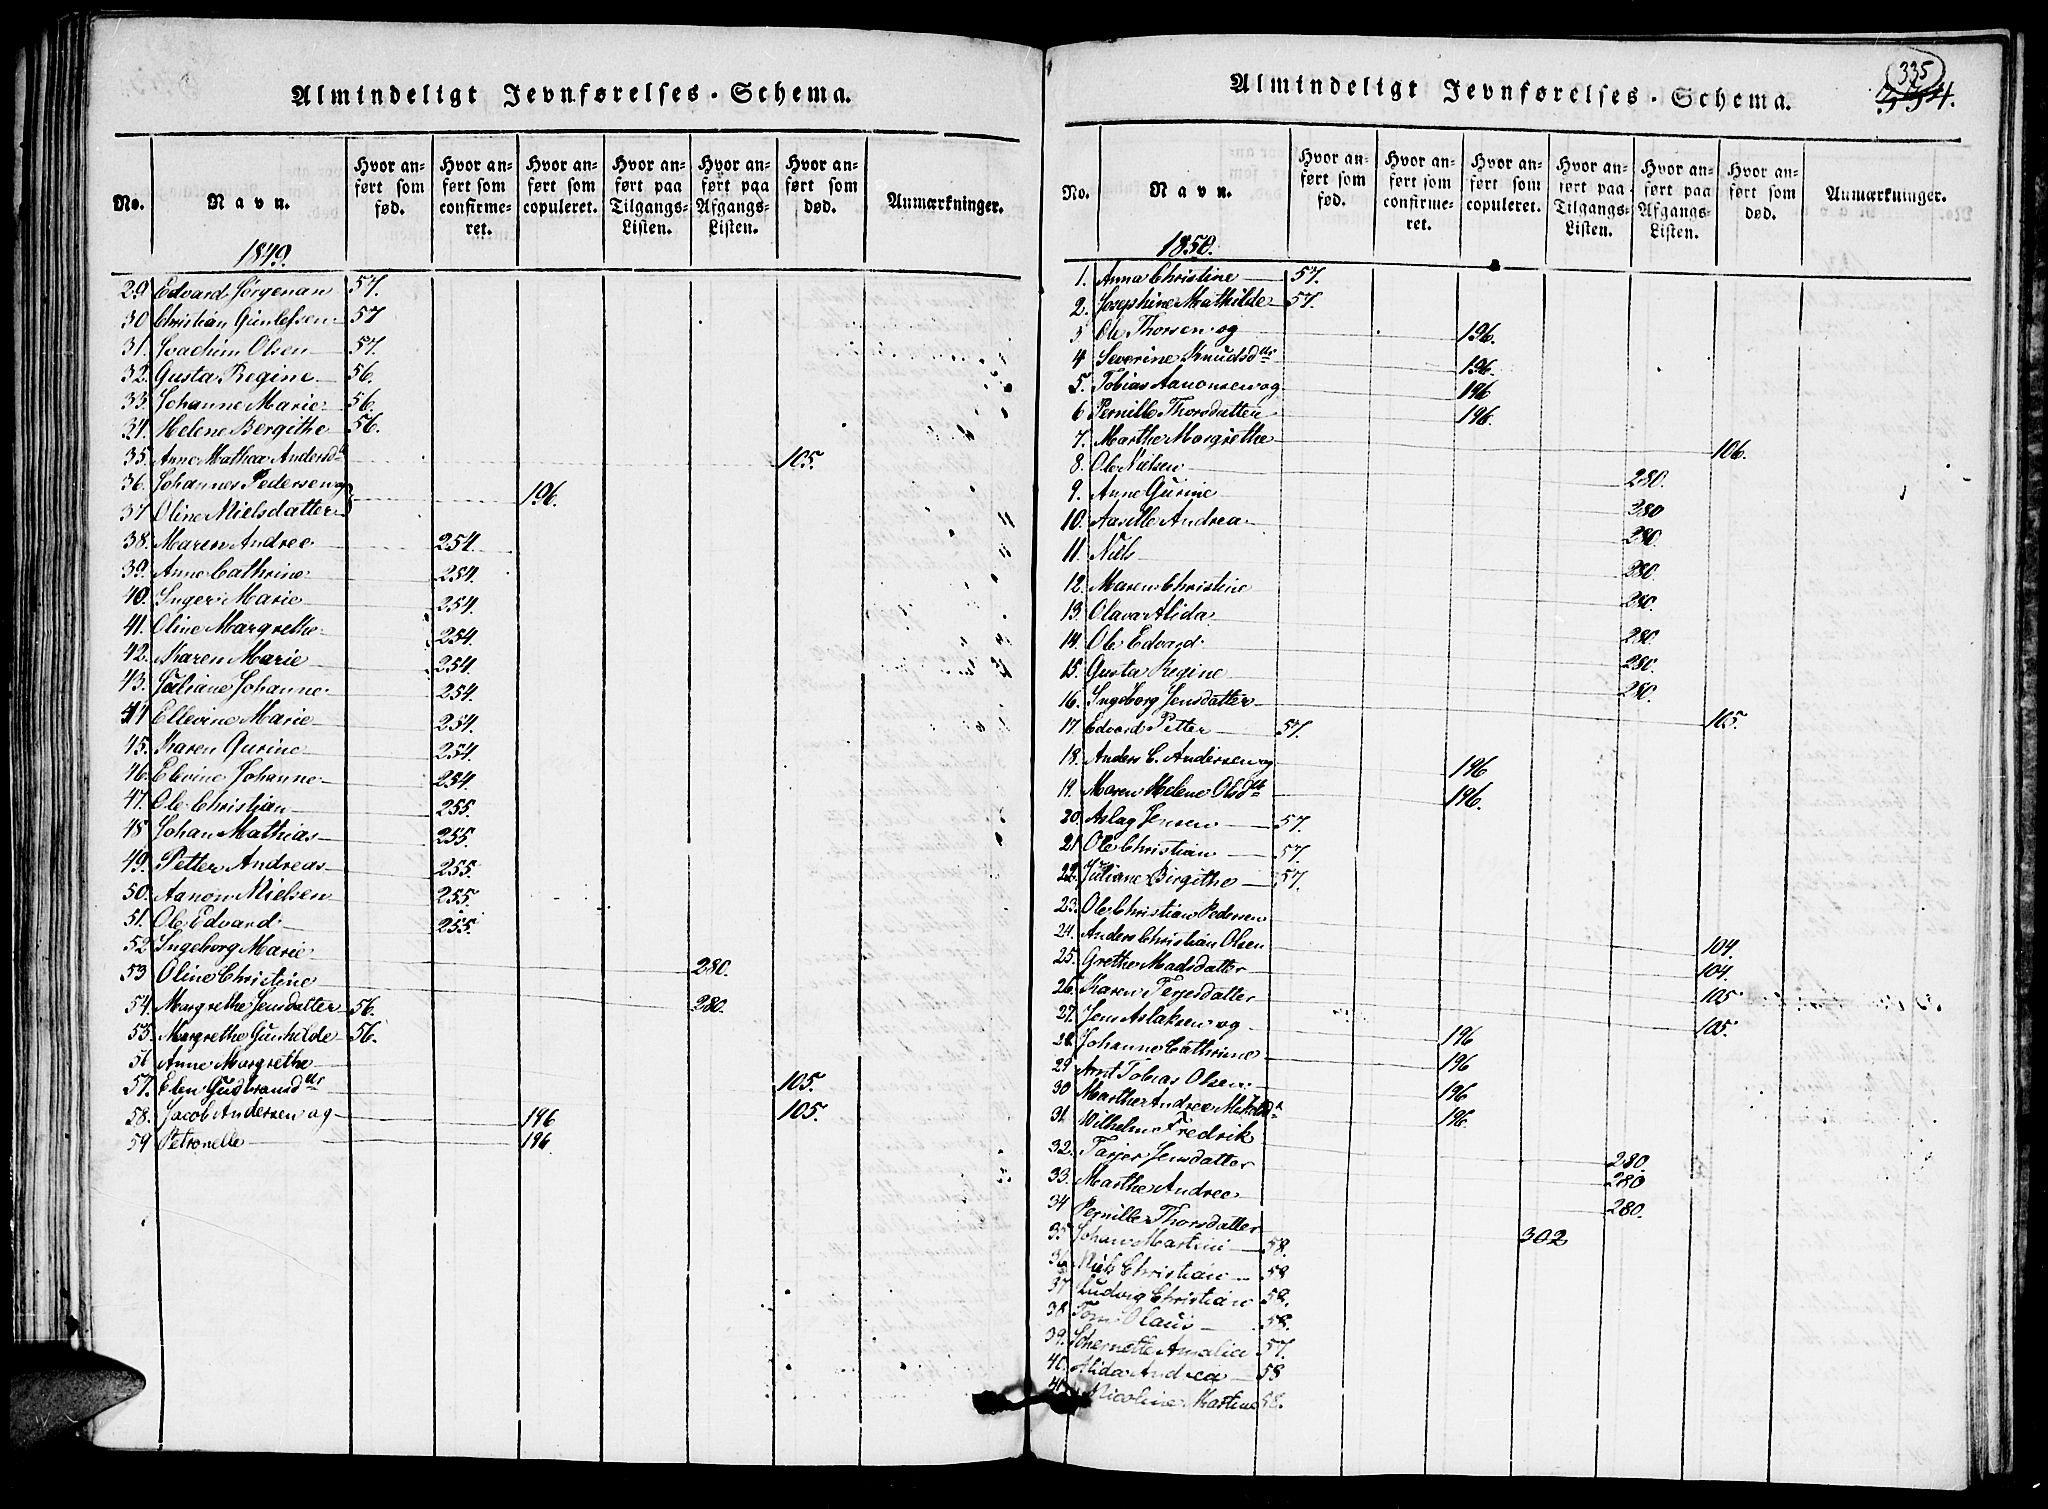 Almindeligt Jevnførelses-Schema.
No.
Navn.
Hvor anført som fød.
Hvor anført som confirmeret.
Hvor anført som copuleret.
Hvor anført paa Tilgangs-Listen.
Hvor anført paa Afgangs-Listen.
Hvor anført som død.
Anmærkninger.
1849.
29 Edvard Jørgensen 57.
30 Christian Gunlefsen 57
31. Joachim Olsen 57.
32. Gusta Regine 56.
33. Johanne Marie 56.
34. Helene Bergithe 56.
35. Anne Mathea Andersd 105.
36. Johannes Pedersen og 196.
37. Oline Nielsdatter
38. Maren Andree 254.
39. Anne Cathrine 254.
40. Inger Marie 254.
41. Oline Margrethe 254.
42. Karen Marie 254.
43. Juliane Johanne 254.
44 Ellevine Marie 254.
45. Karen Gurine 254.
46. Elevine Johanne 254.
47. Ole Christian 255.
48 Johan Mathias 255.
49. Petter Andreas 255
50. Aanon Nielsen 255
51. Ole Edvard 255.
52 Ingeborg Marie 280.
53 Oline Christine 280.
54. Margrethe Jensdatter 56.
55. Margrethe Gunhilde 56.
56 Anne Margrethe 105.
57. Elen Gudbrandsd 105.
58. Jacob Andersen og 196
59 Petronelle 196.
Almindeligt Jevnførelses-Schema.
335
334.
No.
Navn.
Hvor anført som fød.
Hvor anført som confirmeret.
Hvor anført som copuleret.
Hvor anført paa Tilgangs-Listen.
Hvor anført paa Afgangs-Listen.
Hvor anført som død.
Anmærkninger.
1850.
1. Anna Christine 57.
2. Josephine Mathilde 57.
3 Ole Thorsen og 196.
4 Severine Knudsd 196.
5. Tobias Aanonsen og 196
6 Pernille Thorsdatter 196.
7. Marthe Margrethe 106.
8. Ole Nielsen 280.
9. Anne Gurine 280
10. Aaselle Andrea 280.
11. Niels 280.
12. Maren Christine 280.
13. Olava Alida 280.
14. Ole Edvard 280.
15. Gusta Regine 280.
16. Ingeborg Jensdatter 105.
17. Edvard Petter 57.
18. Anders C. Andersen og 196
19. Maren Helene Olsd 196.
20. Aslag Jensen 57.
21 Ole Christian 57.
22. Juliane Birgithe 57.
23. Ole Christian Pedersen 104.
24. Anders Christian Olsen 104.
25. Grethe Madsdatter 105
26. Karen Terjesdatter 105.
27. Jens Aslaksen og 196
28. Johanne Cathrine 196
29 Arnt Tobias Olsen 196
30 Marthe Andree 196.
31. Wilhelm Fredrik 280.
32. Tarjer Jensdatter 280
33. Marthe Andree 280.
34 Pernille Thorsdatter 302
35 Johan Martin 58.
36 Niels Christian 58
37 Ludvig Christian 58.
38 Tom Olaus 58.
39. Amalia 57.
40. Alida Andrea 58
41 Nicoline Martine 58.